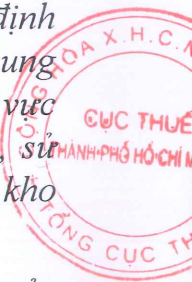 định
ung
vực
sử
kho
CỘNG HÒA X.H.C.N
CỤC THUẾ
THÀNH PHỐ HỒ CHÍ M
TỔNG CỤC TH